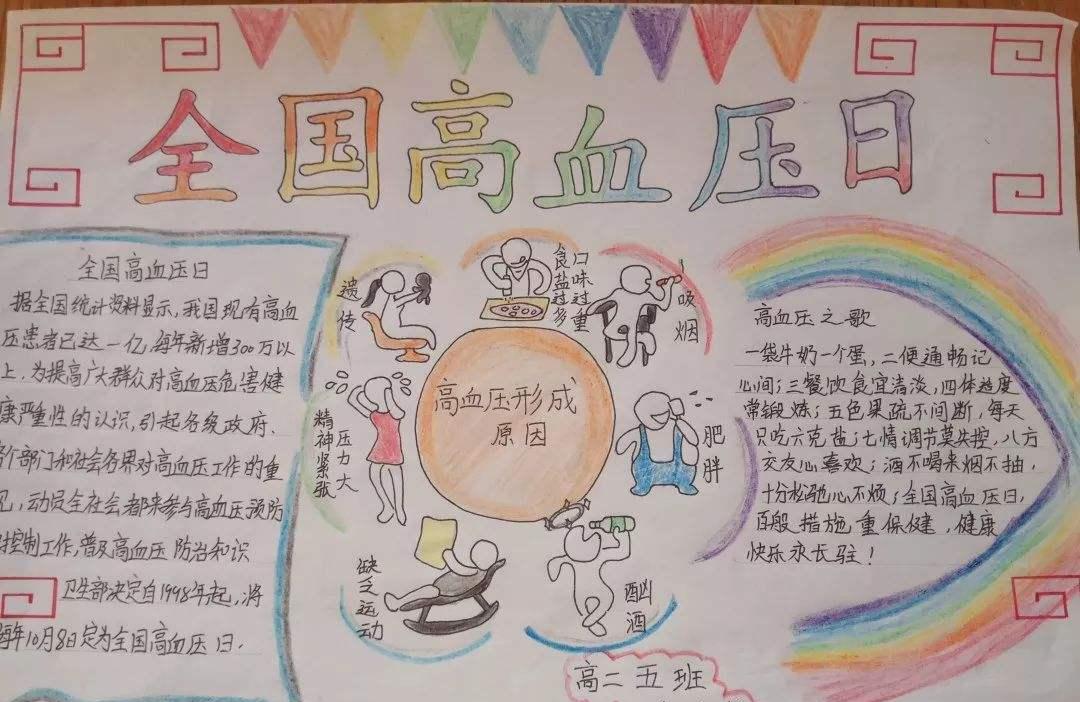 全国高血压日
全国高血压日
据全国统计资料显示，我国现有高血
压患者已达一亿，每年新增300万以
上，为提高广大群众对高血压危害健
康严重性的认识，引起各级政府、
各个部门和社会各界对高血压工作的重
视，动员全社会都来参与高血压预防
控制工作，普及高血压防治知识
卫生部决定自1998年起，将
每年10月8日定为全国高血压日．
遗传
口味过重
食盐过多
吸烟
肥胖
酗酒
缺乏运动
压力大
精神紧张
高血压形成
原因
高血压之歌
一袋牛奶一个蛋，二便通畅记
心间；三餐饮食宜清淡，四体适度
常锻炼；五色果疏不间断，每天
只吃六克盐；七情调节莫失控，八方
交友心喜欢；酒不喝来烟不抽，
十分松弛心不烦；全国高血压日，
百般措施重保健，健康
快乐永长驻！
高二五班